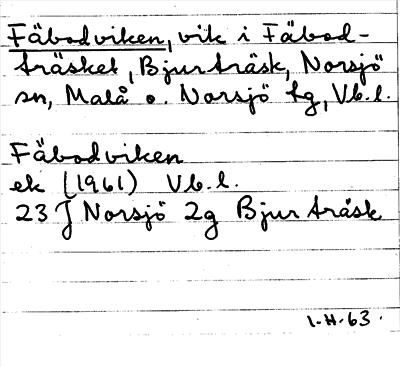 Fäbodviken, vik i Fäbod-
träsket, Bjurträsk, Norsjö
sn, Malå o. Norsjö tg, Vb.l.
Fäbodviken
ek (1961) Vb.l.
23 J Norsjö 2g Bjurträsk
I.H.63.